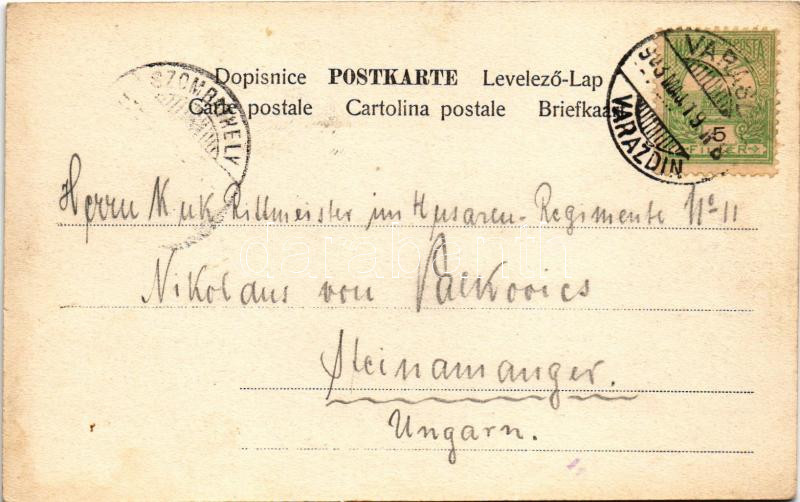 Dopisnice POSTKARTE Levelező-Lap
Carte postale Cartolina postale Briefkaart
SZOMBATHELY
VARASD
903
VARAZDIN
5
FILLER
Herrn K u K Rittmeister im Husaren-Regimente No 11
Nikolaus von Packovics
Steinamanger.
Ungarn.